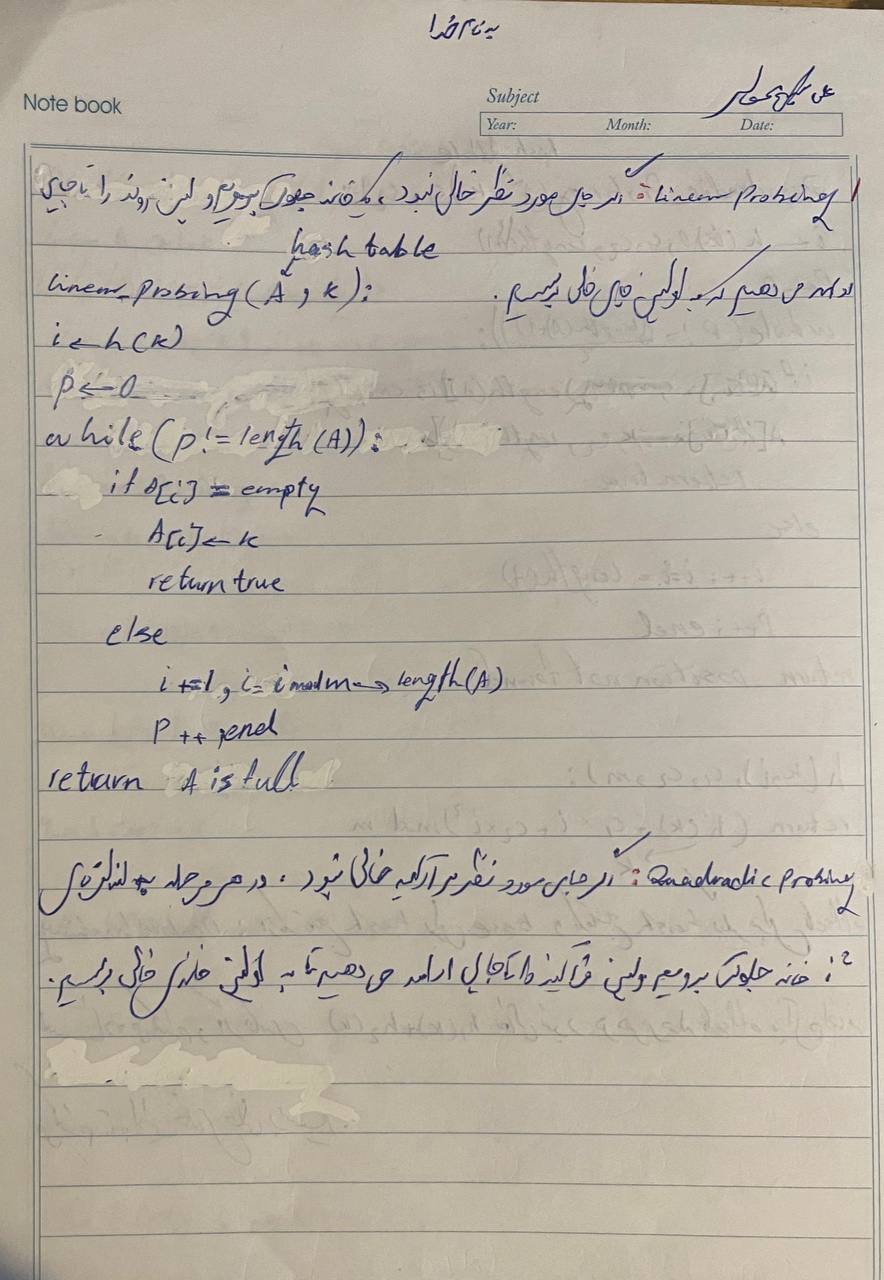 به نام خدا
Note book
Subject
علی
Year: Month: Date:
Linear Probing: اگر جای مورد نظر خالی نبود، یک خانه جلوتر برویم و این روند را تا جایی
ادامه می دهیم که به اولین جای خالی برسیم.
hash table
Linear_Probing(A, K):
i ← h(K)
P ← 0
while (p != length(A)):
if A[i] = empty
A[i] ← K
return true
else
i +=1, i = i mod m → length(A)
P++ ;end
return A is full
Quadradic Probing: اگر جای مورد نظر در آرایه خالی نبود، در هر مرحله به اندازه ی
i² خانه جلوتر برویم و این فرآیند را تا جایی ادامه می دهیم تا به اولین خانه ی خالی برسیم.